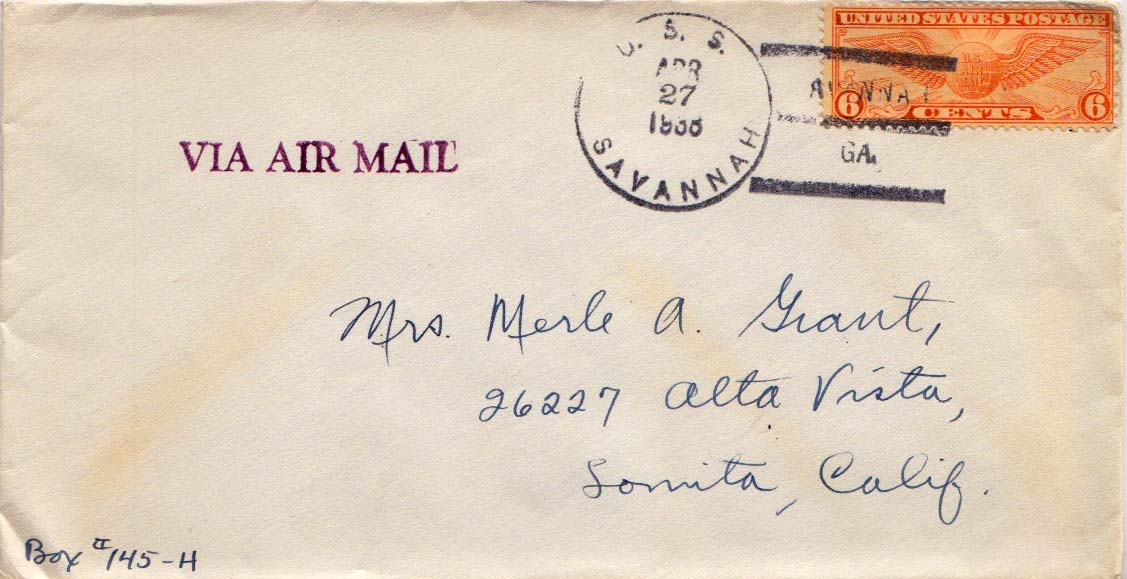 UNITED STATES POSTAGE
U.S.
6 CENTS 6
U. S. S.
APR
27
1938
SAVANNAH
GA.
VIA AIR MAIL
Mrs. Merle A. Grant,
26227 Alta Vista,
Lomita, Calif.
Box #145-H